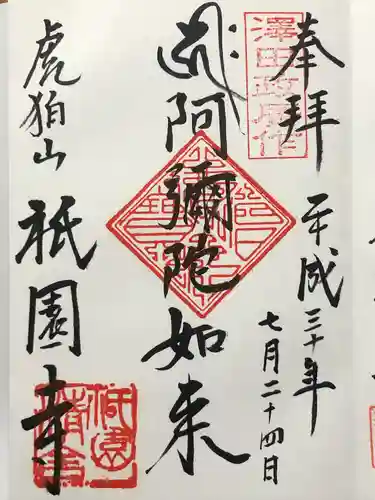 奉拝
平成三十年
七月二十四日
澤田政廣作
阿彌陀如来
虎狛山
祇園寺